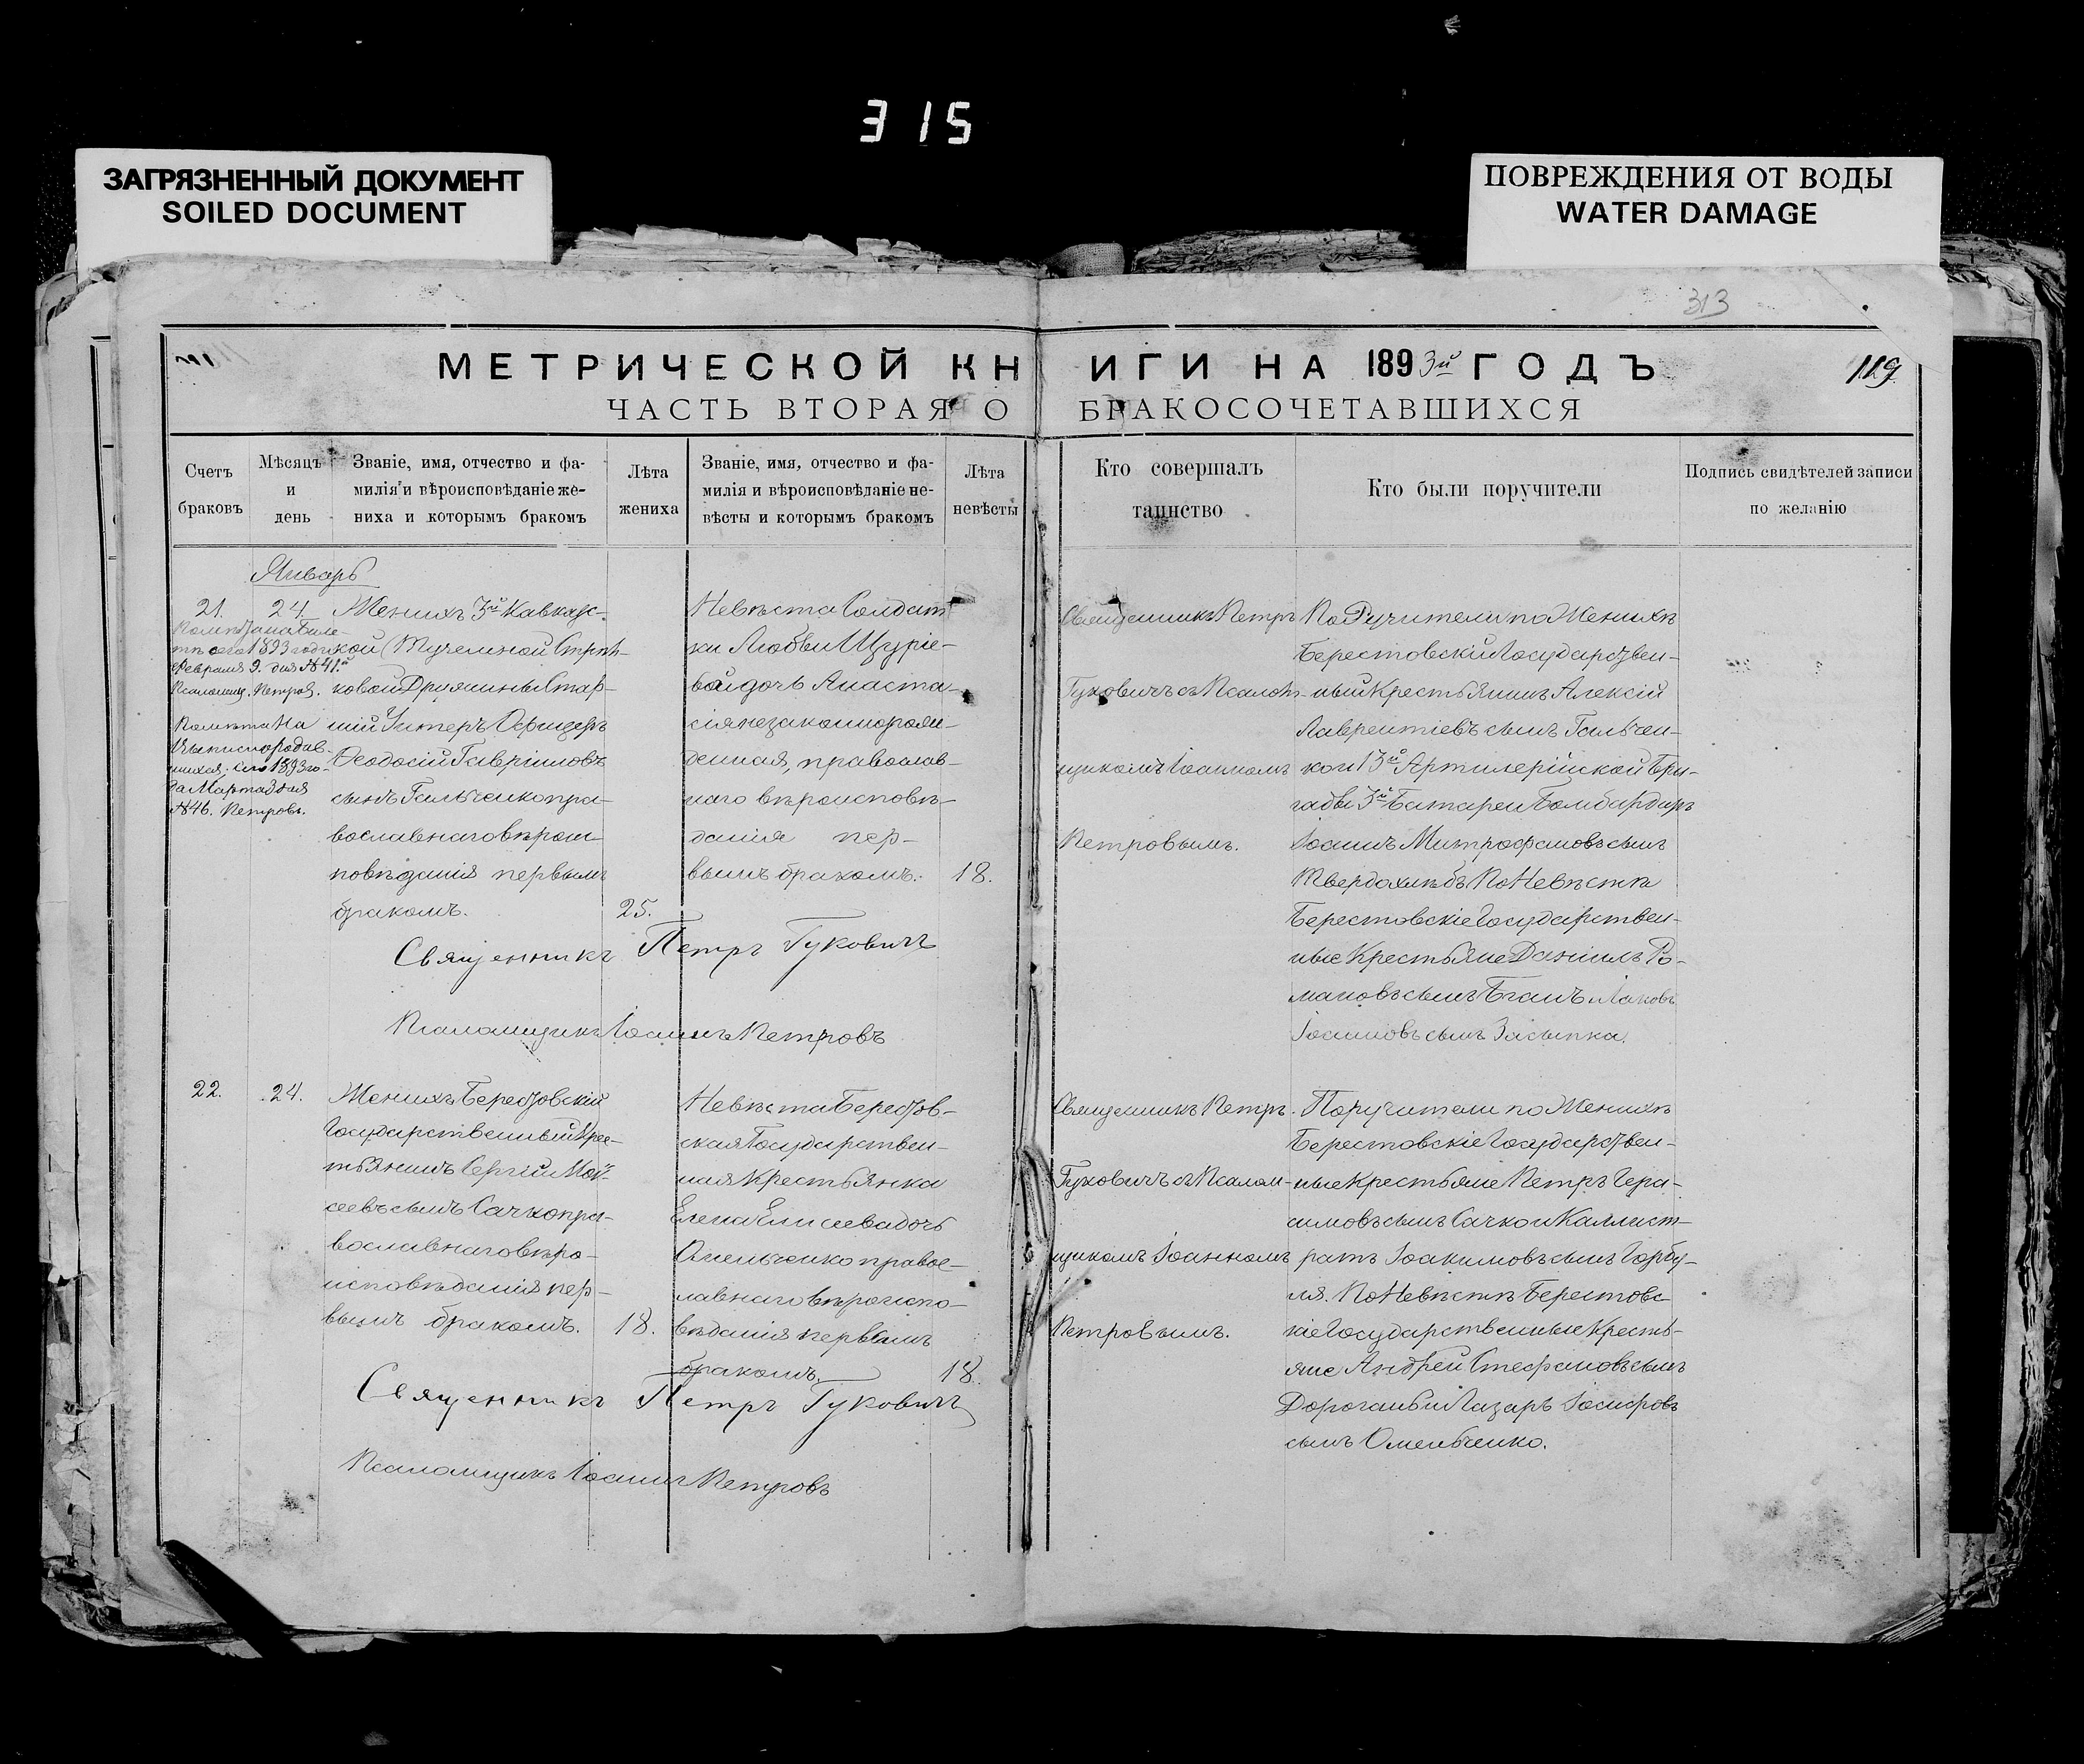 315
ЗАГРЯЗНЕННЫЙ ДОКУМЕНТ
SOILED DOCUMENT
ПОВРЕЖДЕНИЯ ОТ ВОДЫ
WATER DAMAGE
313
МЕТРИЧЕСКОЙ КНИГИ НА 1893й ГОДЪ
119
ЧАСТЬ ВТОРАЯ О БРАКОСОЧЕТАВШИХСЯ
Счетъ
браковъ
Мѣсяцъ
и
день
Званіе, имя, отчество и фа-
милія и вѣроисповѣданіе же-
ниха и которымъ бракомъ
Лѣта
жениха
Званіе, имя, отчество и фа-
милія и вѣроисповѣданіе не-
вѣсты и которымъ бракомъ
Лѣта
невѣсты
Кто совершалъ
таинство
Кто были поручители
Подпись свидѣтелей записи
по желанію
Январь
21.
24
сего 1893 года
Февраля 9. дня №41.й
Псаломщ. Петров.
Помѣта На
сего 1893 го-
да Марта дня
№46. Петровъ.
Женихъ 3й Кавказс-
кой Туземной Стрѣл-
ковой Дружины Стар-
шій Унтеръ Офицеръ
Ѳеодосій Гавріиловъ
сынъ Гальченко пра-
вославнаго вѣроис-
повѣданія первымъ
бракомъ.
25.
Невѣста Солдат
ки Любви
вой дочь Анаста-
сія незаконнорож-
денная, православ-
наго вѣроисповѣ-
данія пер-
вымъ бракомъ.
18.
Священникъ Петръ
Гуковичъ съ Псалом-
щикомъ Іоанномъ
Петровымъ.
По Ручители по Женихѣ
Берестовскій Государствен-
ный Крестьянинъ Алексій
Лаврентіевъ сынъ Гальчен-
ко и 13й Артилерійской Бри-
гады 3й Батареи Бомбардиръ
Іоаннъ Митрофановъ сынъ
Твердохлѣбъ По Невѣстѣ
Берестовскіе Государствен-
ные Крестьяне Даніилъ Ро-
мановъ сынъ Беганъ и Іаковъ
Іоанновъ сынъ Засыпка.
Священникъ Петръ Гуковичъ
Псаломщикъ Іоаннъ Петровъ
22.
24.
Женихъ Берестовскій
Государственный Крес-
тьянинъ Сергій Мой-
сеевъ сынъ Сачко пра-
вославнаго вѣро-
исповѣданія пер-
вымъ бракомъ.
18.
Невѣста Берестов-
ская Государствен-
ная Крестьянка
Елена Елисеева дочь
Омельченко правос-
лавнаго вѣроиспо-
вѣданія первымъ
бракомъ.
18.
Священникъ Петръ
Гуковичъ съ Псалом-
щикомъ Іоанномъ
Петровымъ.
Поручители по Женихѣ
Берестовскіе Государствен-
ные Крестьяне Петръ Гера-
симовъ сынъ Сачко и Каллист-
ратъ Іоакимовъ сынъ Горбу-
ля. По Невѣстѣ Берестовс
кіе Государственные Кресть-
яне Андрей Стефановъ сынъ
Дороганъ и Лазарь Іосифовъ
сынъ Омельченко.
Священникъ Петръ Гуковичъ
Псаломщикъ Іоаннъ Петровъ